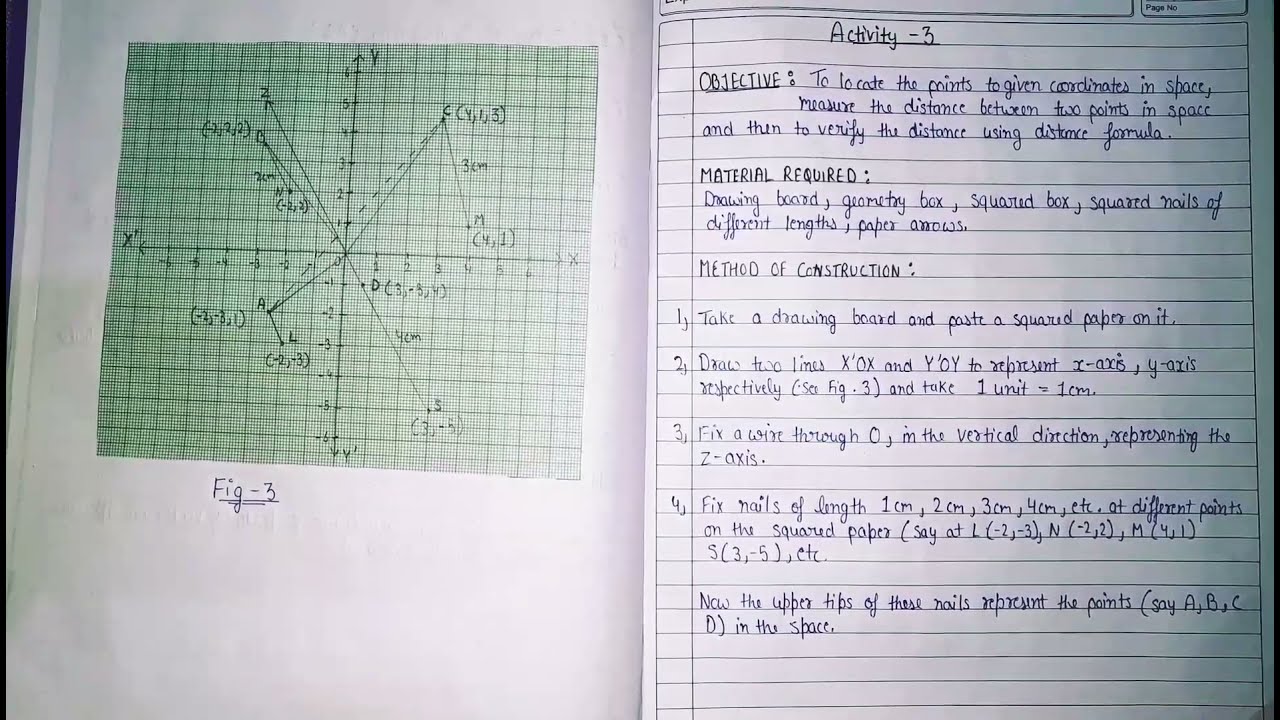 Y
6
Z
5
C (4,1,3)
(-2,2,2) B
4
3
3cm
2cm
2
N
(-2,2)
1
M
(4,1)
X'
X
-5 -4 -3
1 2 3 4 5 6
-1
D (3,-5,4)
A
(-2,-3,1)
-2
4cm
L
-3
(-2,-3)
-4
-5
S
(3,-5)
-6
Y'
Fig - 3
Page No
Activity - 3
OBJECTIVE : To locate the points to given coordinates in space,
measure the distance between two points in space
and then to verify the distance using distance formula.
MATERIAL REQUIRED :
Drawing board, geometry box, squared box, squared nails of
different lengths, paper arrows.
METHOD OF CONSTRUCTION :
1, Take a drawing board and paste a squared paper on it.
2, Draw two lines X'OX and Y'OY to represent x-axis, y-axis
respectively (See Fig. 3) and take 1 unit = 1cm.
3, Fix a wire through O, in the vertical direction, representing the
Z-axis.
4, Fix nails of length 1cm, 2cm, 3cm, 4cm, etc. at different points
on the squared paper (say at L (-2,-3), N (-2,2), M (4,1)
S(3,-5), etc.
Now the upper tips of these nails represent the points (say A, B, C
D) in the space.